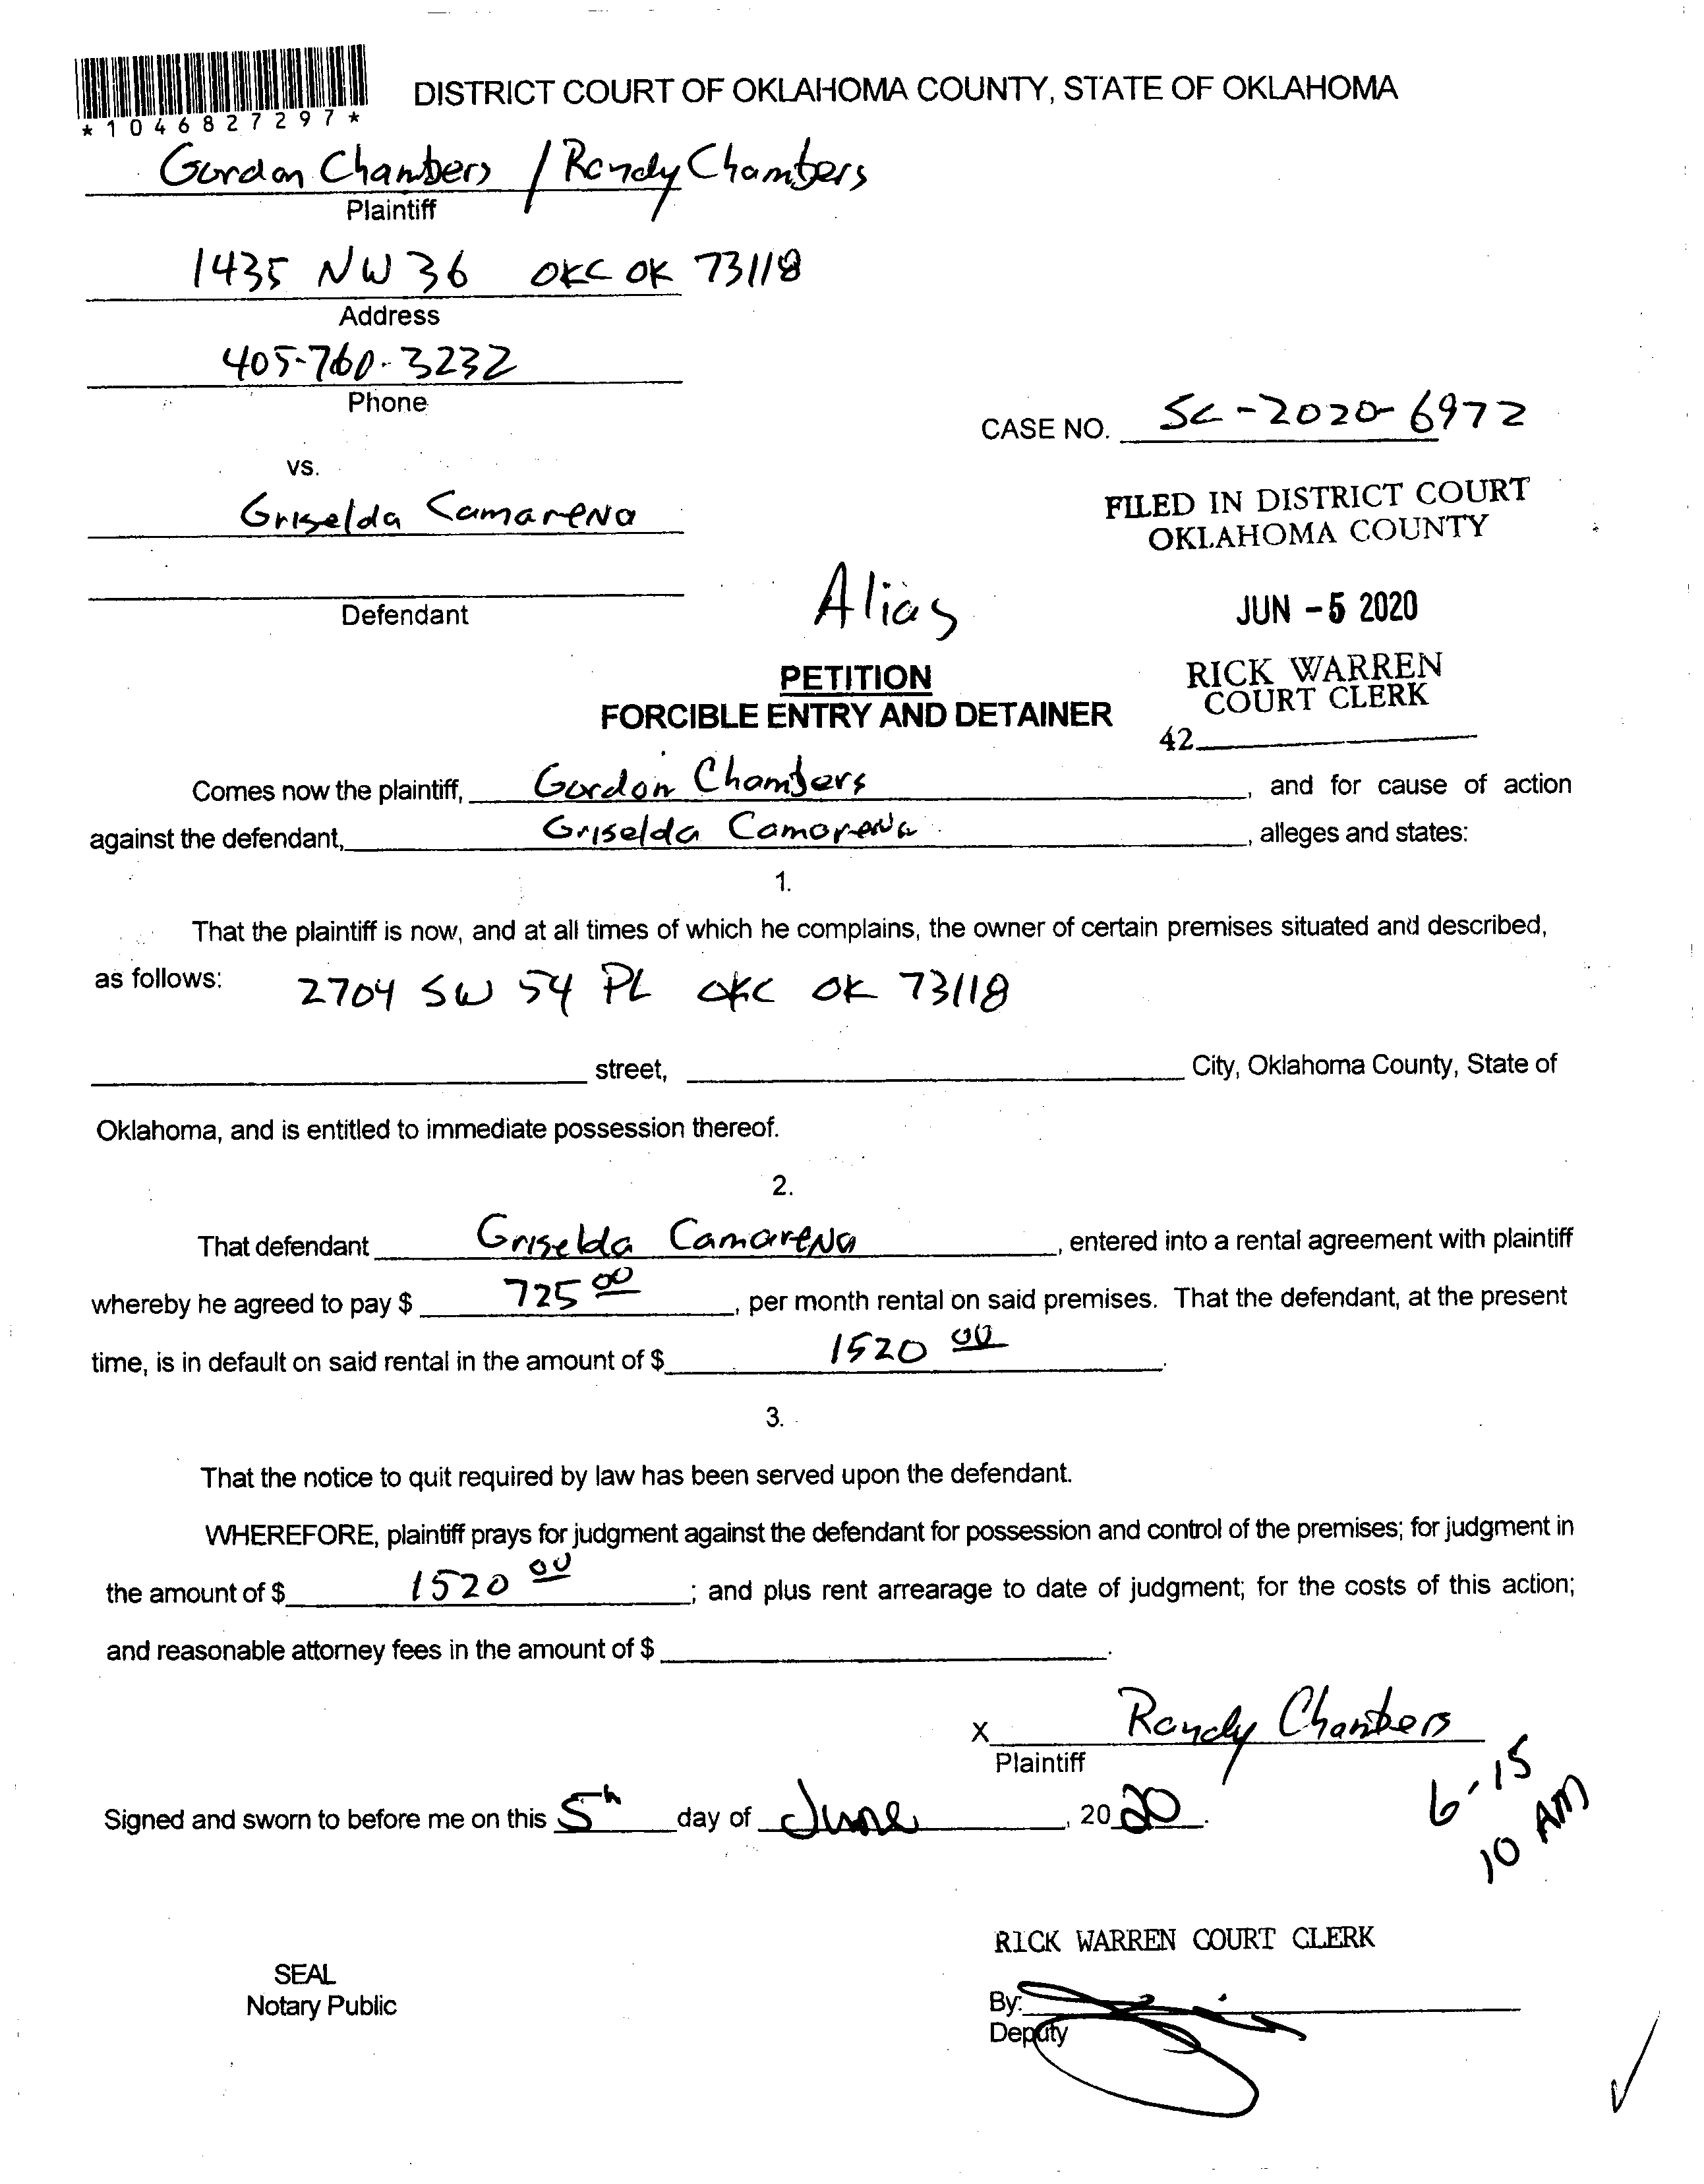 DISTRICT COURT OF OKLAHOMA COUNTY, STATE OF OKLAHOMA
*1046827297*
Gordon Chambers / Randy Chambers
Plaintiff
1435 NW 36 OKC OK 73118
Address
405-760-3232
Phone
CASE NO. SC-2020-6972
vs.
Griselda Camarena
FILED IN DISTRICT COURT
OKLAHOMA COUNTY
Alias
JUN -5 2020
Defendant
RICK WARREN
COURT CLERK
42
PETITION
FORCIBLE ENTRY AND DETAINER
Comes now the plaintiff, Gordon Chambers, and for cause of action
against the defendant, Griselda Camarena, alleges and states:
1.
That the plaintiff is now, and at all times of which he complains, the owner of certain premises situated and described,
as follows: 2704 SW 54 PL OKC OK 73118
street, City, Oklahoma County, State of
Oklahoma, and is entitled to immediate possession thereof.
2.
That defendant Griselda Camarena, entered into a rental agreement with plaintiff
whereby he agreed to pay $ 725 00, per month rental on said premises. That the defendant, at the present
time, is in default on said rental in the amount of $ 1520 00.
3.
That the notice to quit required by law has been served upon the defendant.
WHEREFORE, plaintiff prays for judgment against the defendant for possession and control of the premises; for judgment in
the amount of $ 1520 00; and plus rent arrearage to date of judgment; for the costs of this action;
and reasonable attorney fees in the amount of $ .
X Randy Chambers
Plaintiff
Signed and sworn to before me on this 5th day of June, 2020.
6-15
10 AM
RICK WARREN COURT CLERK
SEAL
Notary Public
By:
Deputy